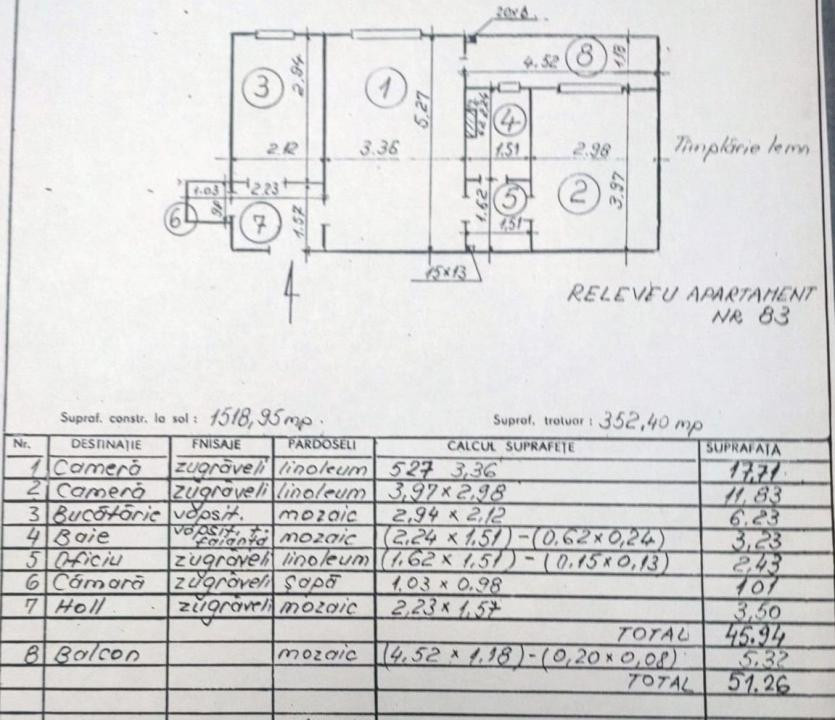 20x8
3
2.94
2.12
1
5.27
3.36
4.52
8
1.18
4
2.24
1.51
2.98
Tîmplărie lemn
1.03
2.23
6
98
7
1.57
1.62
5
1,51
2
3.97
15x13
4
RELEVEU APARTAMENT
NR 83
Supraf. constr. la sol : 1518,95 mp. Supraf. trotuar : 352,40 mp
Nr. DESTINAȚIE FNISAJE PARDOSELI CALCUL SUPRAFEȚE SUPRAFAȚA
1 Cameră zugrăveli linoleum 527 3,36 17,71
2 Cameră zugrăveli linoleum 3,97 x 2,98 11,83
3 Bucătărie vopsit. mozaic 2,94 x 2,12 6,23
4 Baie vopsit. + faianță mozaic (2,24 x 1,51) - (0,62 x 0,24) 3,23
5 Oficiu zugrăveli linoleum (1,62 x 1,51) - (0,15 x 0,13) 2,43
6 Cămară zugrăveli șapă 1.03 x 0.98 101
7 Holl zugrăveli mozaic 2,23 x 1,57 3,50
TOTAL 45.94
8 Balcon mozaic (4,52 x 1,18) - (0,20 x 0,08) 5.32
TOTAL 51.26